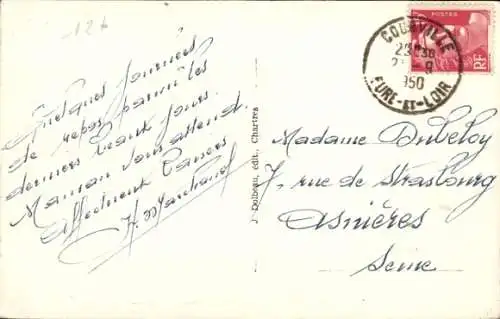 -12k
Quelques journées
de repos parmi les
derniers beaux jours.
Maman vous attend.
Affectueux baisers
H. Marchand
J. Dolbeau, édit., Chartres
POSTES
RF
COURVILLE
1950
EURE-ET-LOIR
Madame Dubeloy
7, rue de Strasbourg
Asnières
Seine